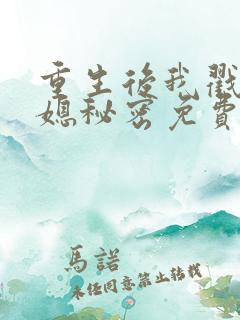 重生後我戳
媳秘密免費
馬諾
未經同意禁止轉載